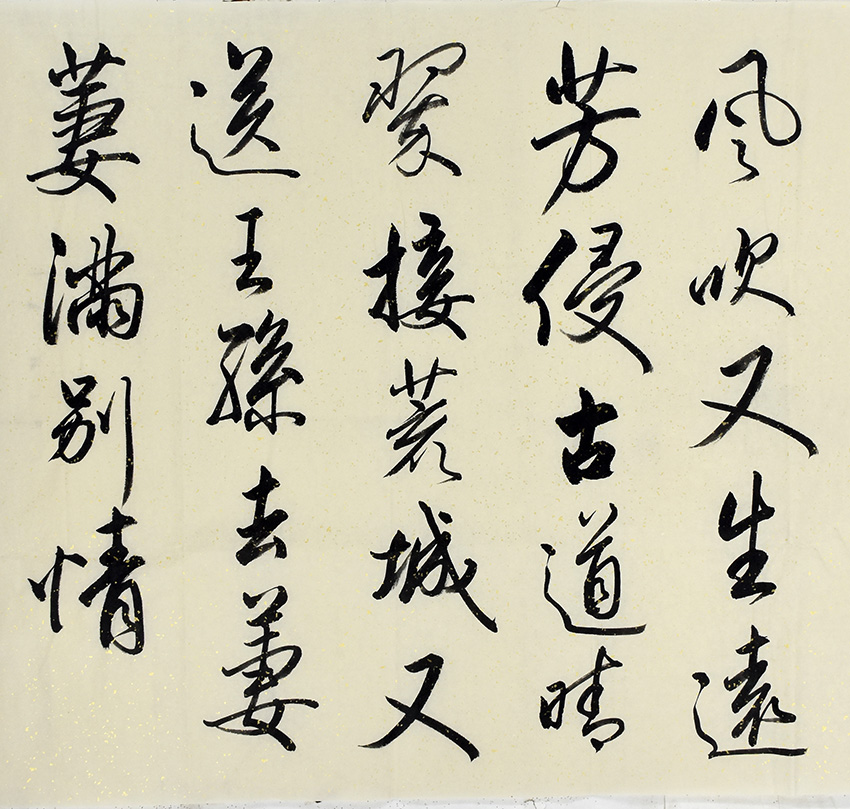 風吹又生遠
芳侵古道晴
翠接荒城又
送王孫去萋
萋滿別情